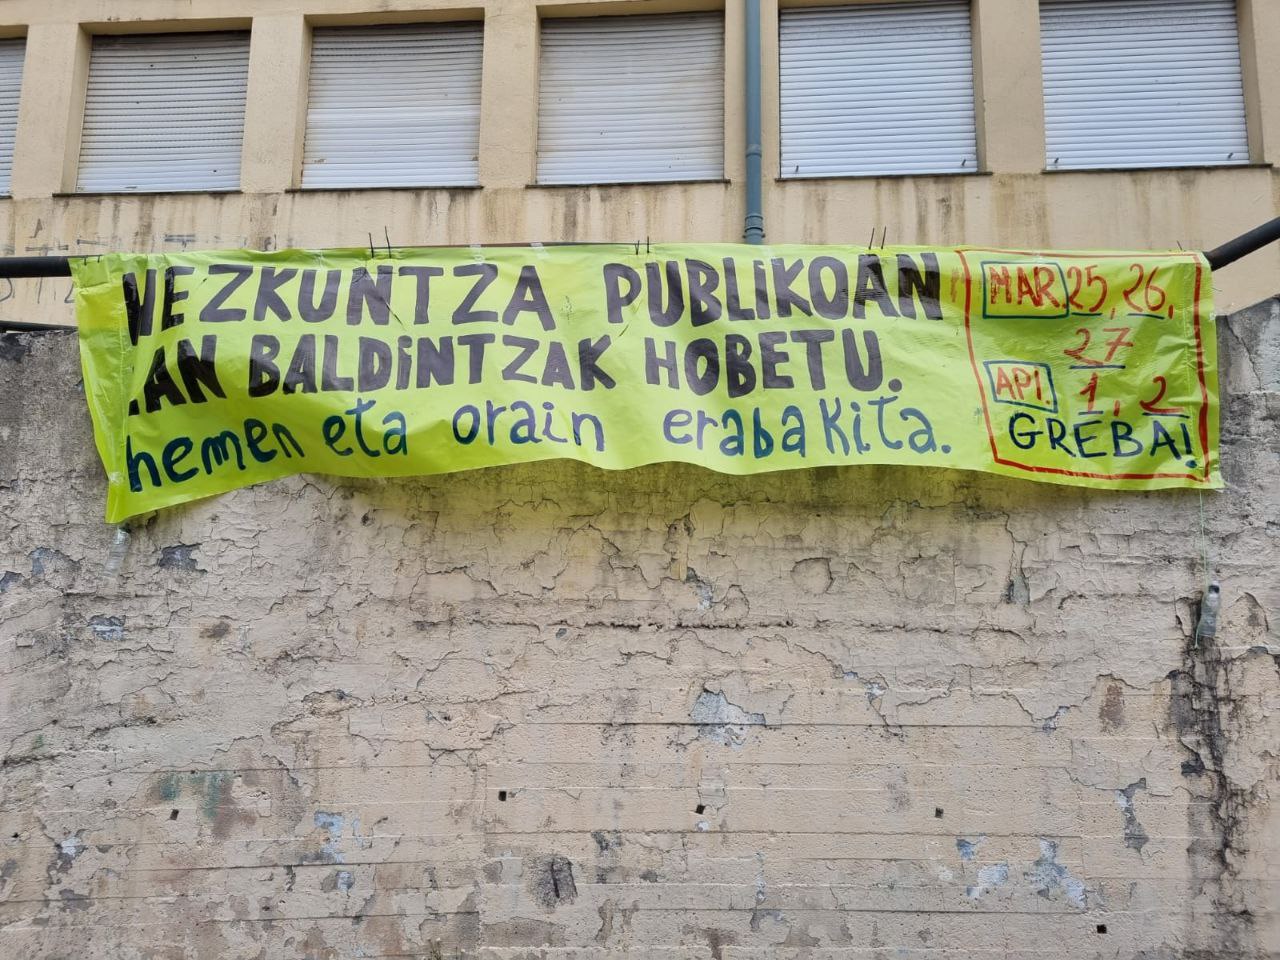 NEZKUNTZA PUBLIKOAN
LAN BALDiNTZAK HOBETU.
hemen eta orain erabakita.
MAR. 25, 26,
27
API. 1, 2
GREBA!